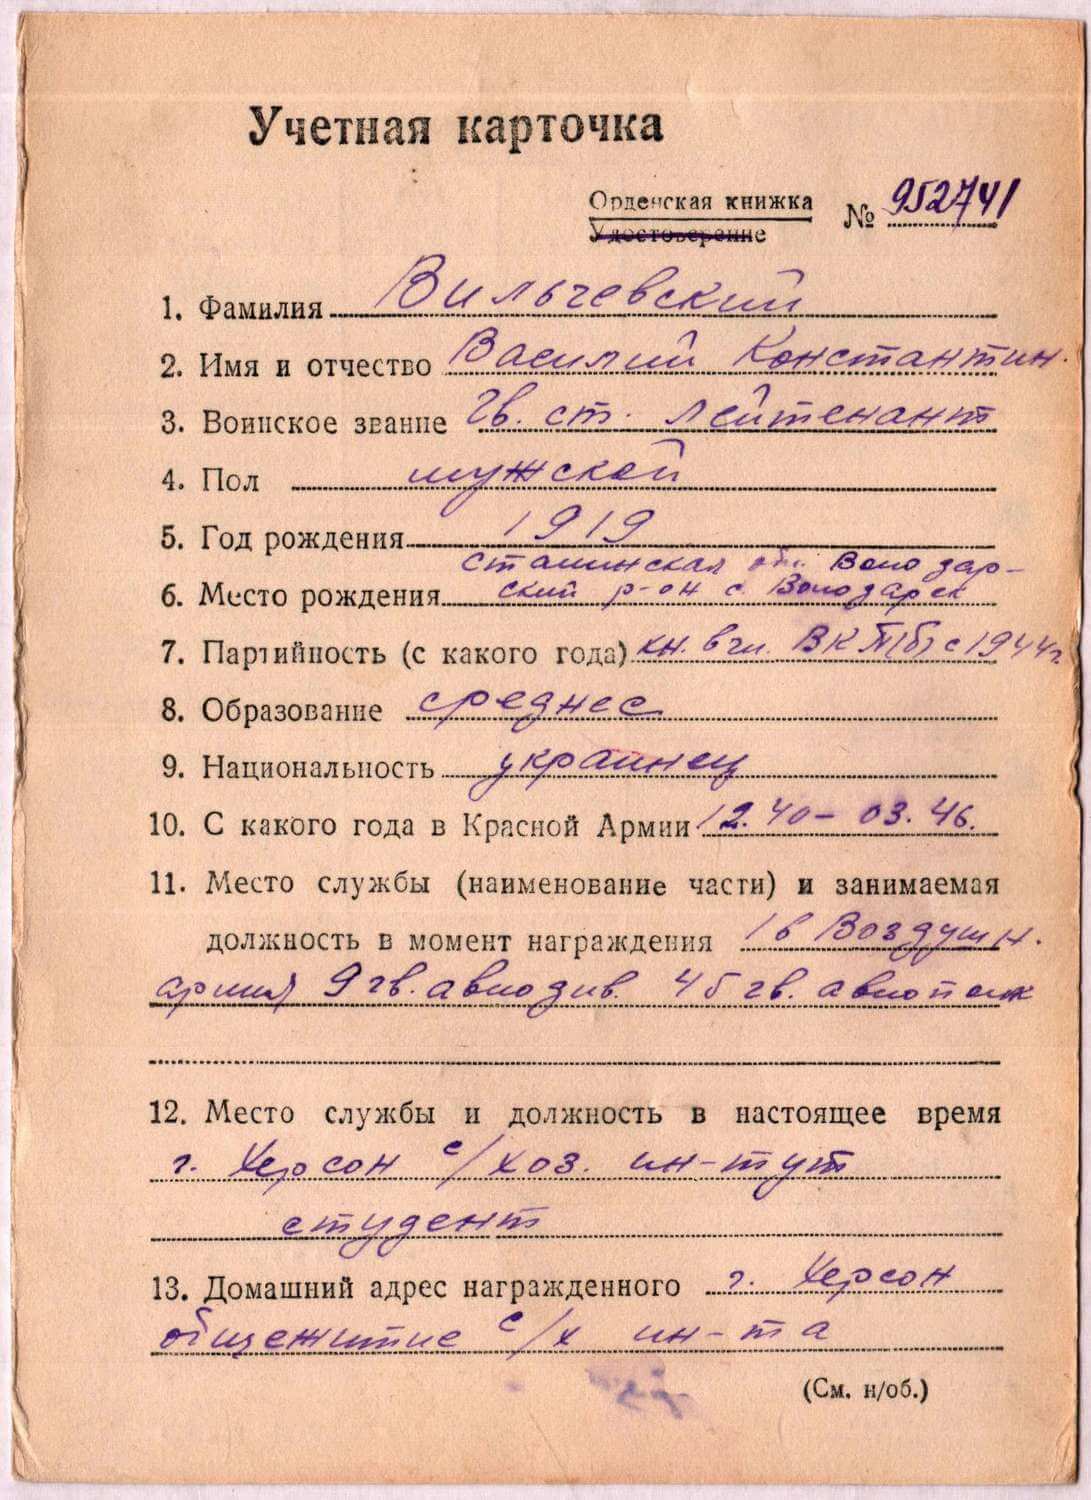 Учетная карточка
Орденская книжка
Удостоверение
№ 952741
1. Фамилия Вильчевский
2. Имя и отчество Василий Константин.
3. Воинское звание гв. ст. лейтенант
4. Пол мужской
5. Год рождения 1919
Сталинская обл. Володар-
6. Место рождения ский р-он с. Володарск
7. Партийность (с какого года) кн. в чл. ВКП(б) с 1944 г.
8. Образование среднее
9. Национальность украинец
10. С какого года в Красной Армии 12.40 – 03.46.
11. Место службы (наименование части) и занимаемая
должность в момент награждения 1в Воздушн.
армия 9 гв. авиодив. 45 гв. авиополк
12. Место службы и должность в настоящее время
г. Херсон с/хоз. ин-тут
студент
13. Домашний адрес награжденного г. Херсон
общежитие с/х ин-та
(См. н/об.)